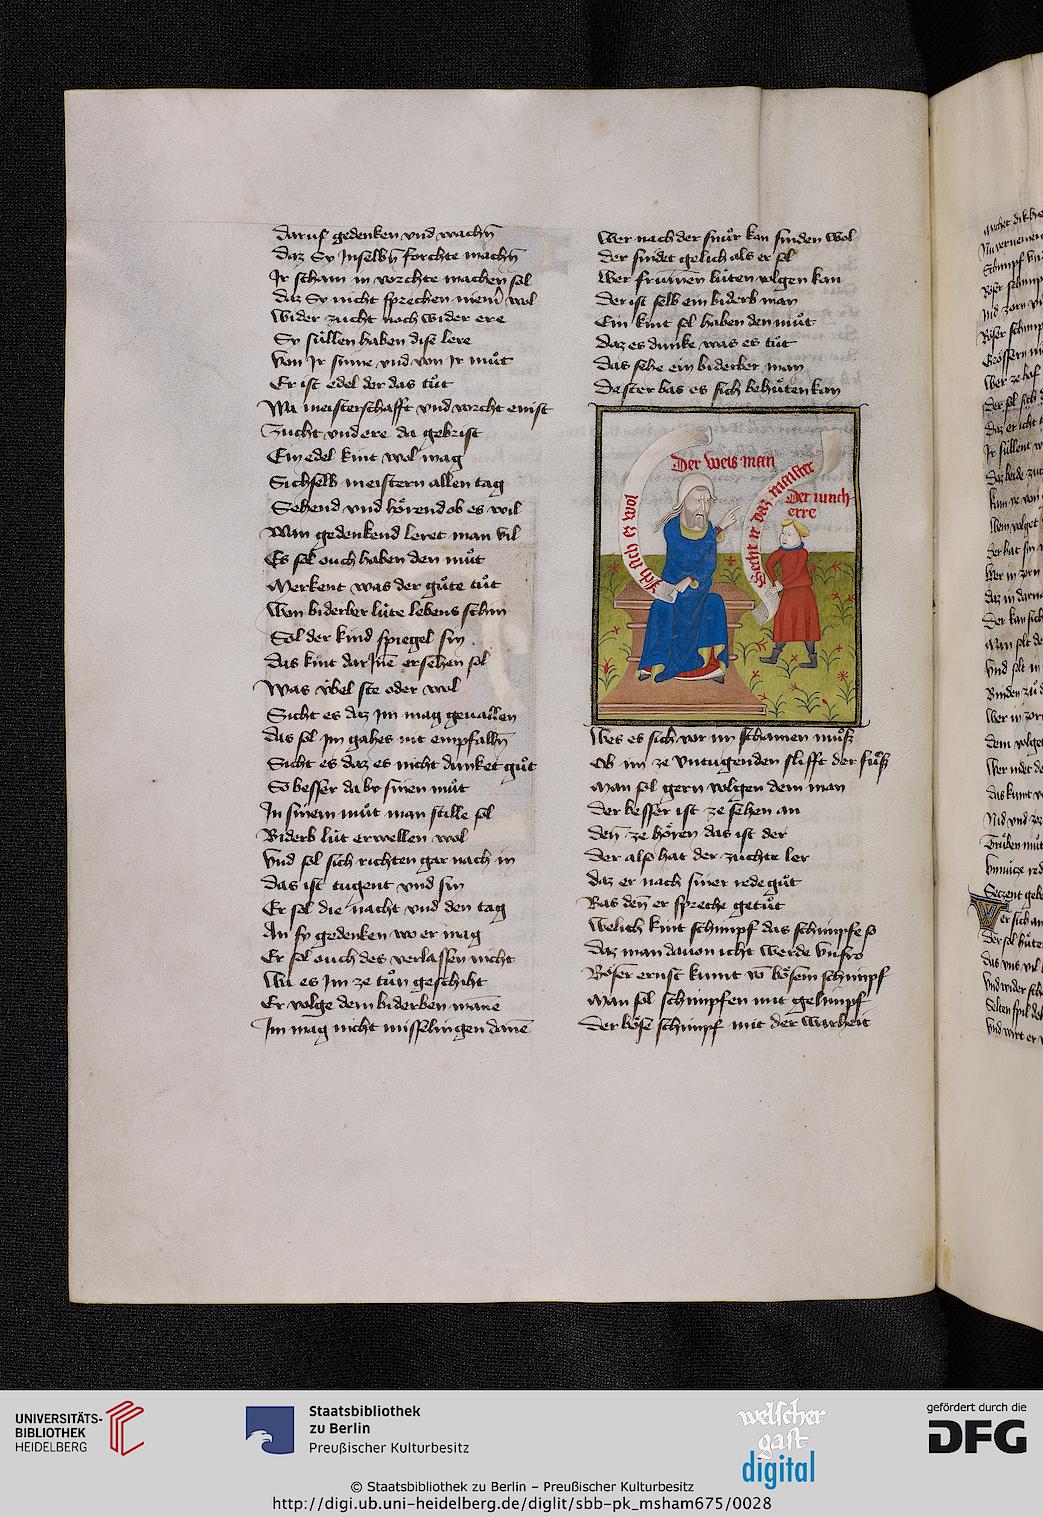 Daruf gedenken vnd wachn̄
Daz Sy Inselbn̄ forchte machn̄
Ir scham in vorchte machen sol
Daz Sy nicht sprechen niem̄ wol
Wider zucht noch wider ere
Sy süllen haben dise lere
Von Ir sinne vnd von Ir mu̇t
Er ist edel der das tu̇t
Wa meisterschafft vnd vorcht enist
Zucht vnd ere da gebrist
Ein edel kint wol mag
Sich selb meistern allen tag
Sehend vnd hörend ob es wil
Wan gedenkend leret man vil
Es sol ouch haben den mu̇t
Merkent was der gu̇te tu̇t
Wan biderber lüte lebens schin
Sol der kind spiegel sin
Das kint dar Inē ersehen sol
Was vbel ste oder wol
Sicht es daz Im mag geuallen
Das sol Im gahes nit empfalln̄
Sicht es daz es nicht dunket gu̇t
So besser da by sinen mu̇t
In sinem mu̇t man stille sol
Biderb lüt erwellen wol
Vnd sol sich richten gar nach in
Das ist tugent vnd sin
Er sol die nacht vnd den tag
An sy gedenken wo er mag
Er sol ouch des verlassen nicht
Wa es Im ze tu̇n geschiht
Er volge dem biderben manē
Im mag nicht misselingen danē
Wer nach der snu̇r kan sinden wol
Der sindet gelich als er sol
Wer frummen lüten volgen kan
Der ist selb ein biderb man
Ein kint sol haben den mu̇t
Daz es dunke was es tüt
Das sehe ein biderber man
Dester bas es sich behu̇ten kan
Der weis man
Ich sich ez wol
Secht ir daz maister
Der iunch
erre
Wes es sich vor im schamen mu̇sz
Ob im ze vntugenden slifft der fu̇sz
Man sol gern volgen dem man
Der besser ist ze sehen an
Den̄ ze hören das ist der
Der also hat der zuchte ler
Daz er nach siner rede gu̇t
Bas den̄ er spreche getu̇t
Welich kint schimpf das schimpfe so
Daz man dauon icht werde vnfro
Böser ernst kumt vō bösem schimpf
Man sol schimpfen mit gelimpf
Der böse schimpf mit der warheit
UNIVERSITÄTS-
BIBLIOTHEK
HEIDELBERG
Staatsbibliothek
zu Berlin
Preußischer Kulturbesitz
welscher
gast
digital
gefördert durch die
DFG
© Staatsbibliothek zu Berlin – Preußischer Kulturbesitz
http://digi.ub.uni-heidelberg.de/diglit/sbb-pk_msham675/0028